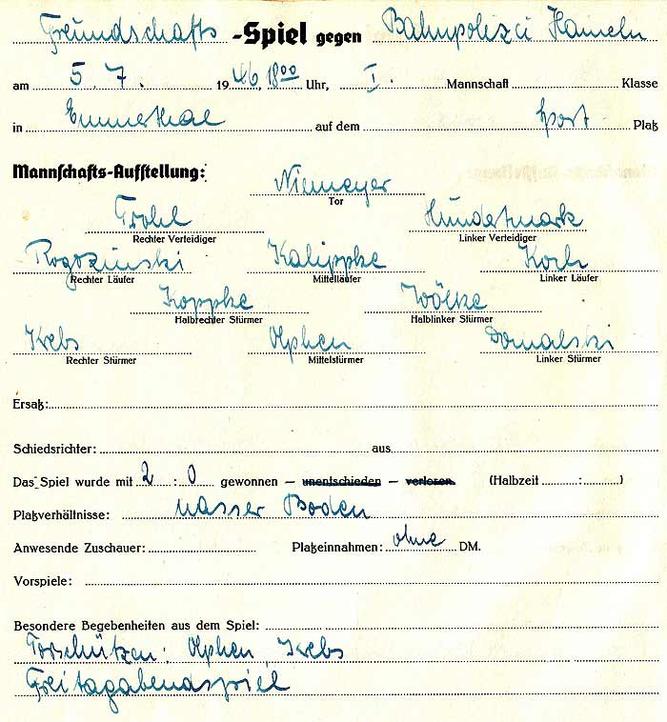 Freundschafts -Spiel gegen Bahnpolizei Hameln
am 5.7. 1946, 18⁰⁰ Uhr, I. Mannschaft Klasse
in Emmerthal auf dem Sport Platz
Mannschafts-Aufstellung:
Niemeyer
Tor
Frohl Hundertmark
Rechter Verteidiger Linker Verteidiger
Rogozinski Kalippke Koch
Rechter Läufer Mittelläufer Linker Läufer
Koppke Wölke
Halbrechter Stürmer Halblinker Stürmer
Krebs Olphen Domalski
Rechter Stürmer Mittelstürmer Linker Stürmer
Ersatz:
Schiedsrichter: aus
Das Spiel wurde mit 2 : 0 gewonnen — unentschieden — verloren. (Halbzeit : )
Platzverhältnisse: nasser Boden
Anwesende Zuschauer: Platzeinnahmen: ohne DM.
Vorspiele:
Besondere Begebenheiten aus dem Spiel:
Torschützen: Olphen Krebs
Freitagabendspiel